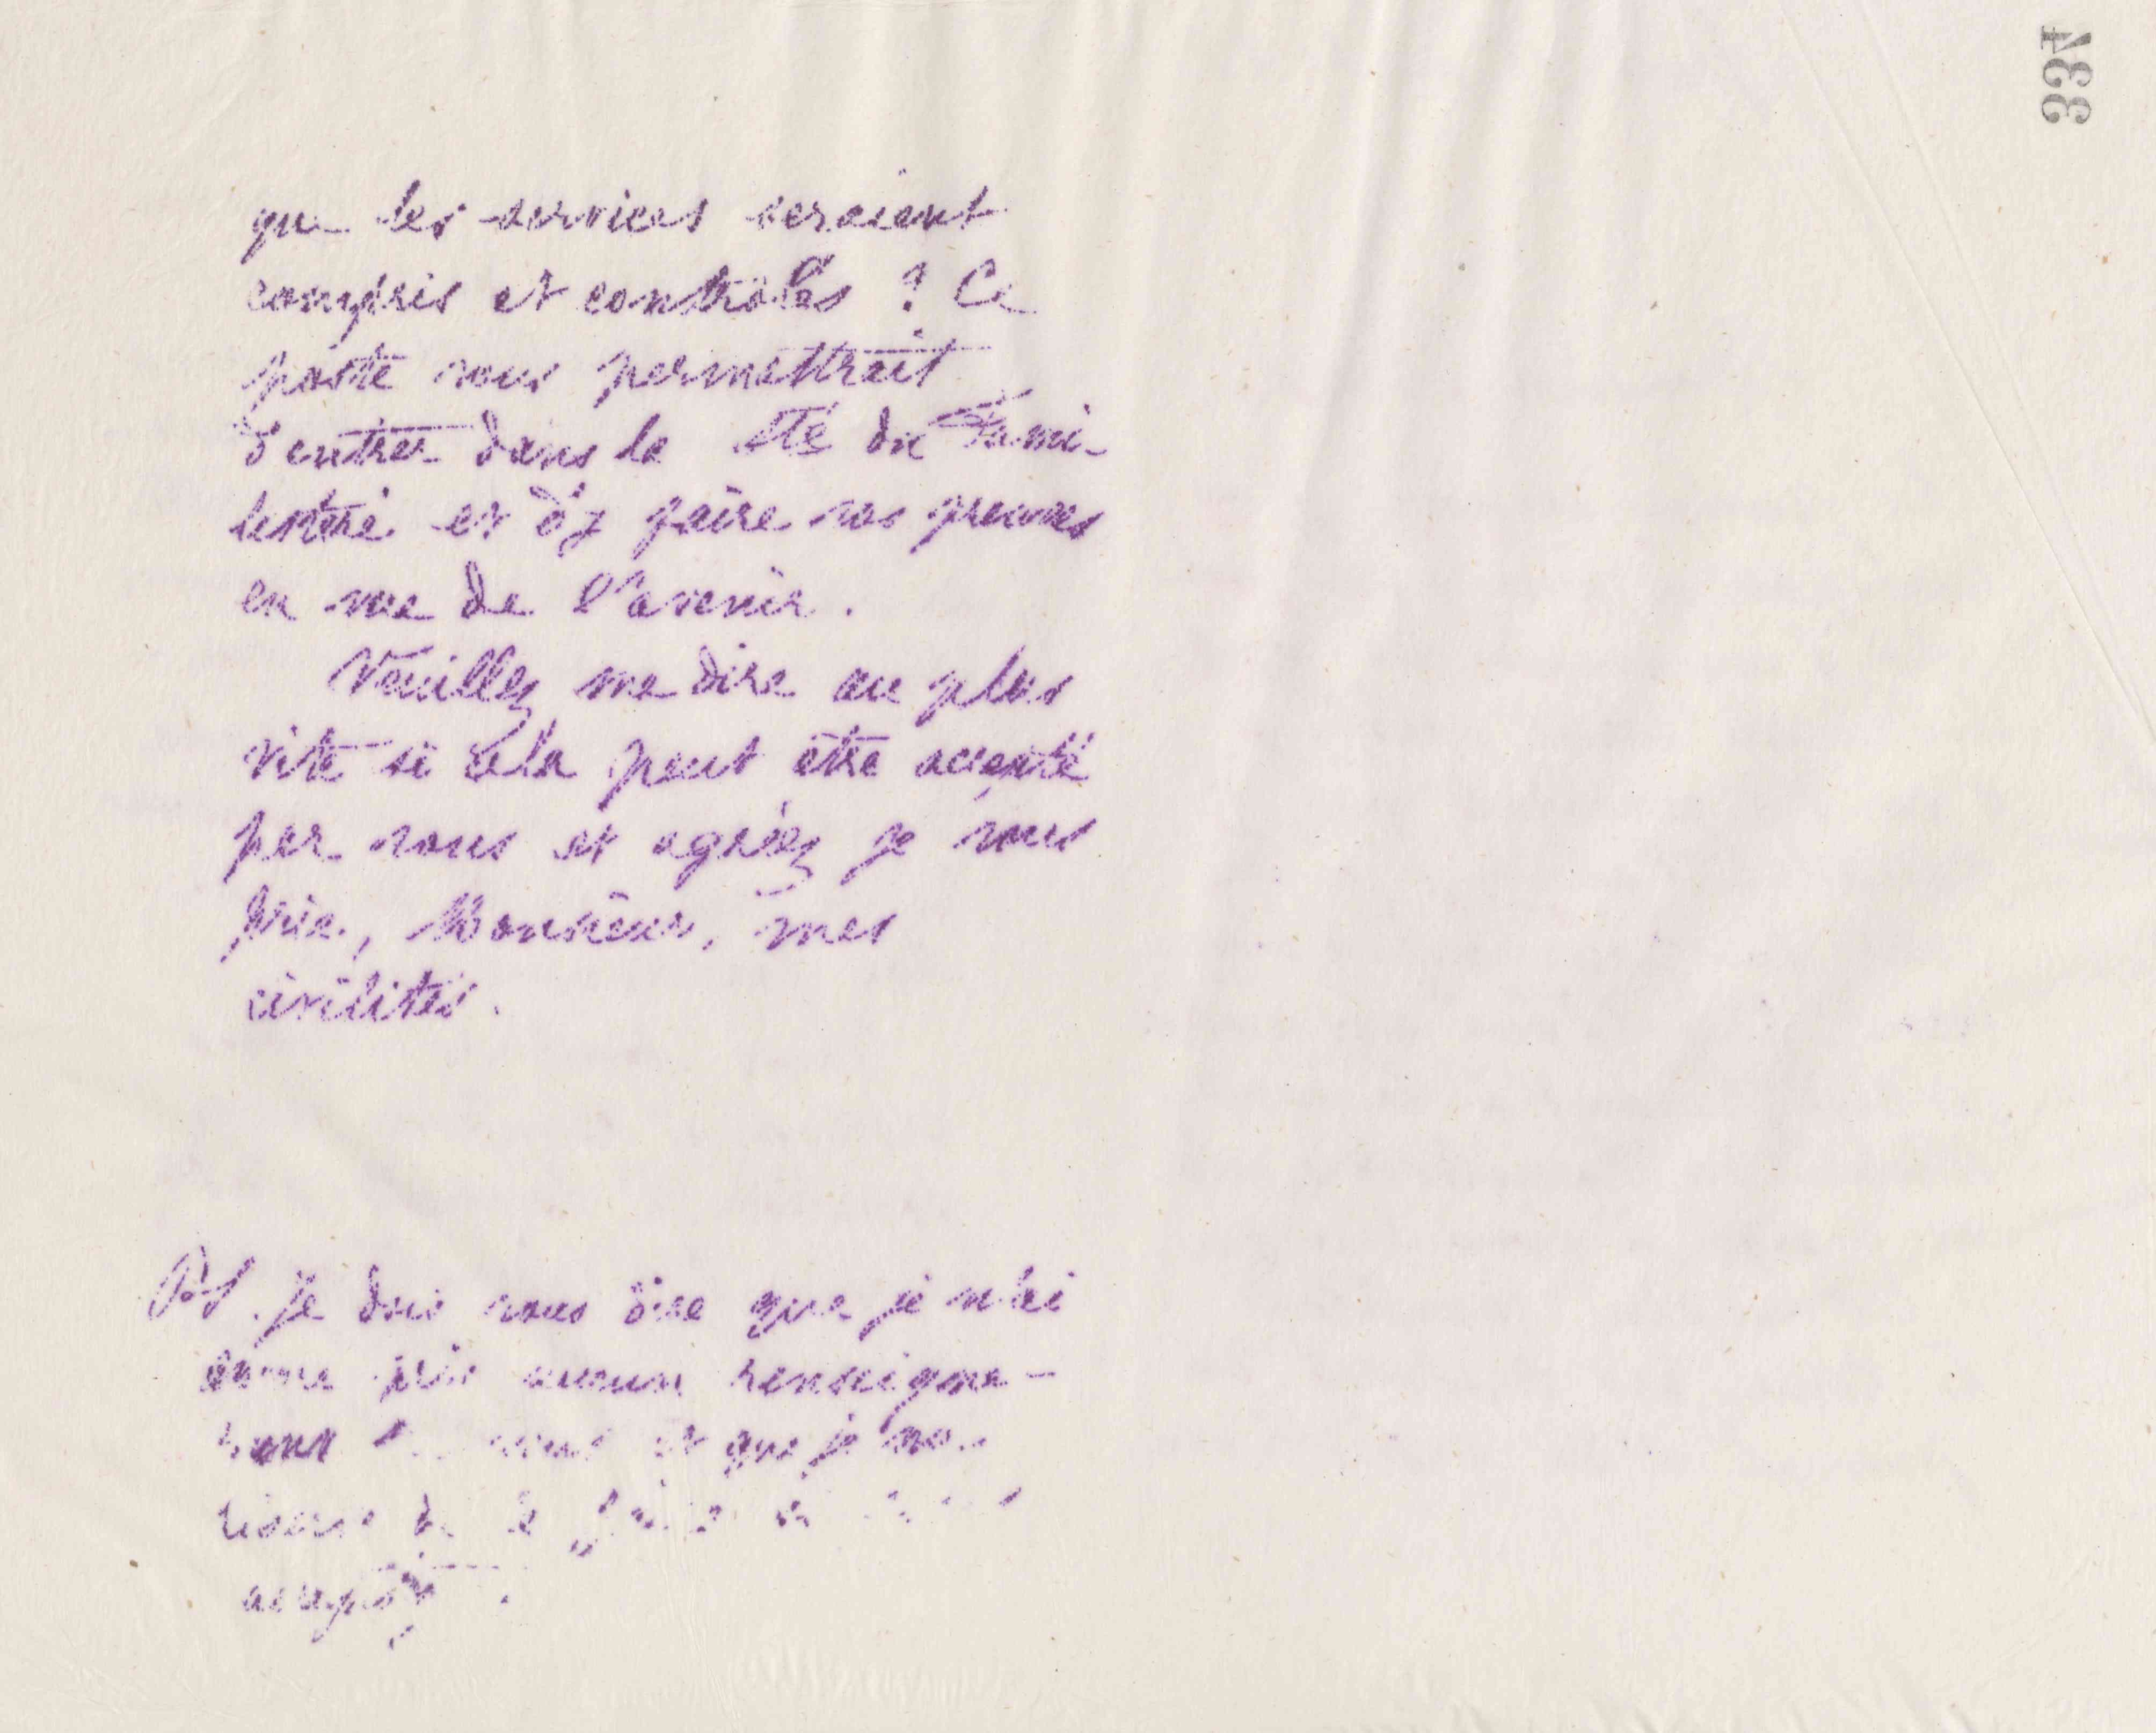 334
que les services seraient
compris et contrôlés ? Ce
poste vous permettrait
d'entrer dans la Sté du Fami-
listère et d'y faire vos preuves
en vue de l'avenir.
Veuillez me dire au plus
vite si cela peut être accepté
par vous et agréez je vous
prie, Monsieur, mes
civilités.
PS. Je dois vous dire que je n'ai
encore pris aucun renseigne-
vous et que je me
réserve de le faire si vous
acceptez.